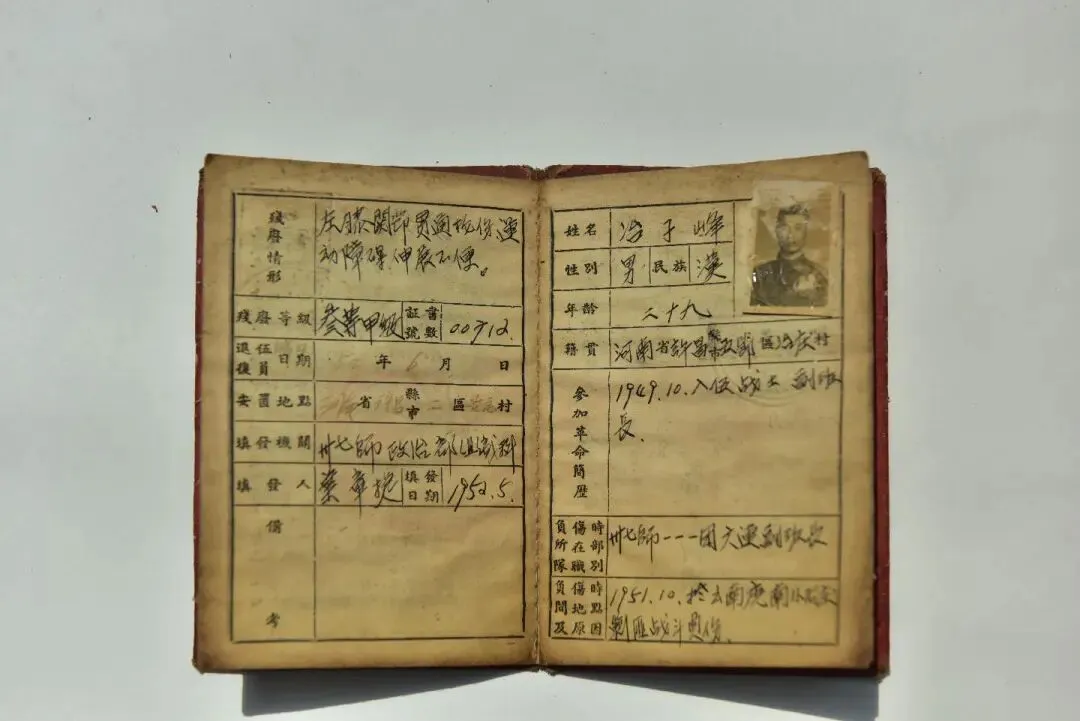 殘廢情形 左膝関節貫通槍傷運
动障碍,伸展不便。
殘廢等級 叁等甲級 証書號數 00712
退伍復員日期 年 6 月 日
安置地點 省 縣市 二 區 村
填發機關 卅七師政治部組織科
填發人 葉華 填發日期 1952.5.
備考
姓名 冶子峰
性別 男 民族 漢
年齡 二十九
籍貫 河南省許昌 區 庄村
參加革命簡歷 1949.10.入伍战士 副班
長.
負傷時所在部隊職別 卅七師一一一团六連副班長
負傷時間地點及原因 1951.10.於云南廣南
剿匪战斗負伤.